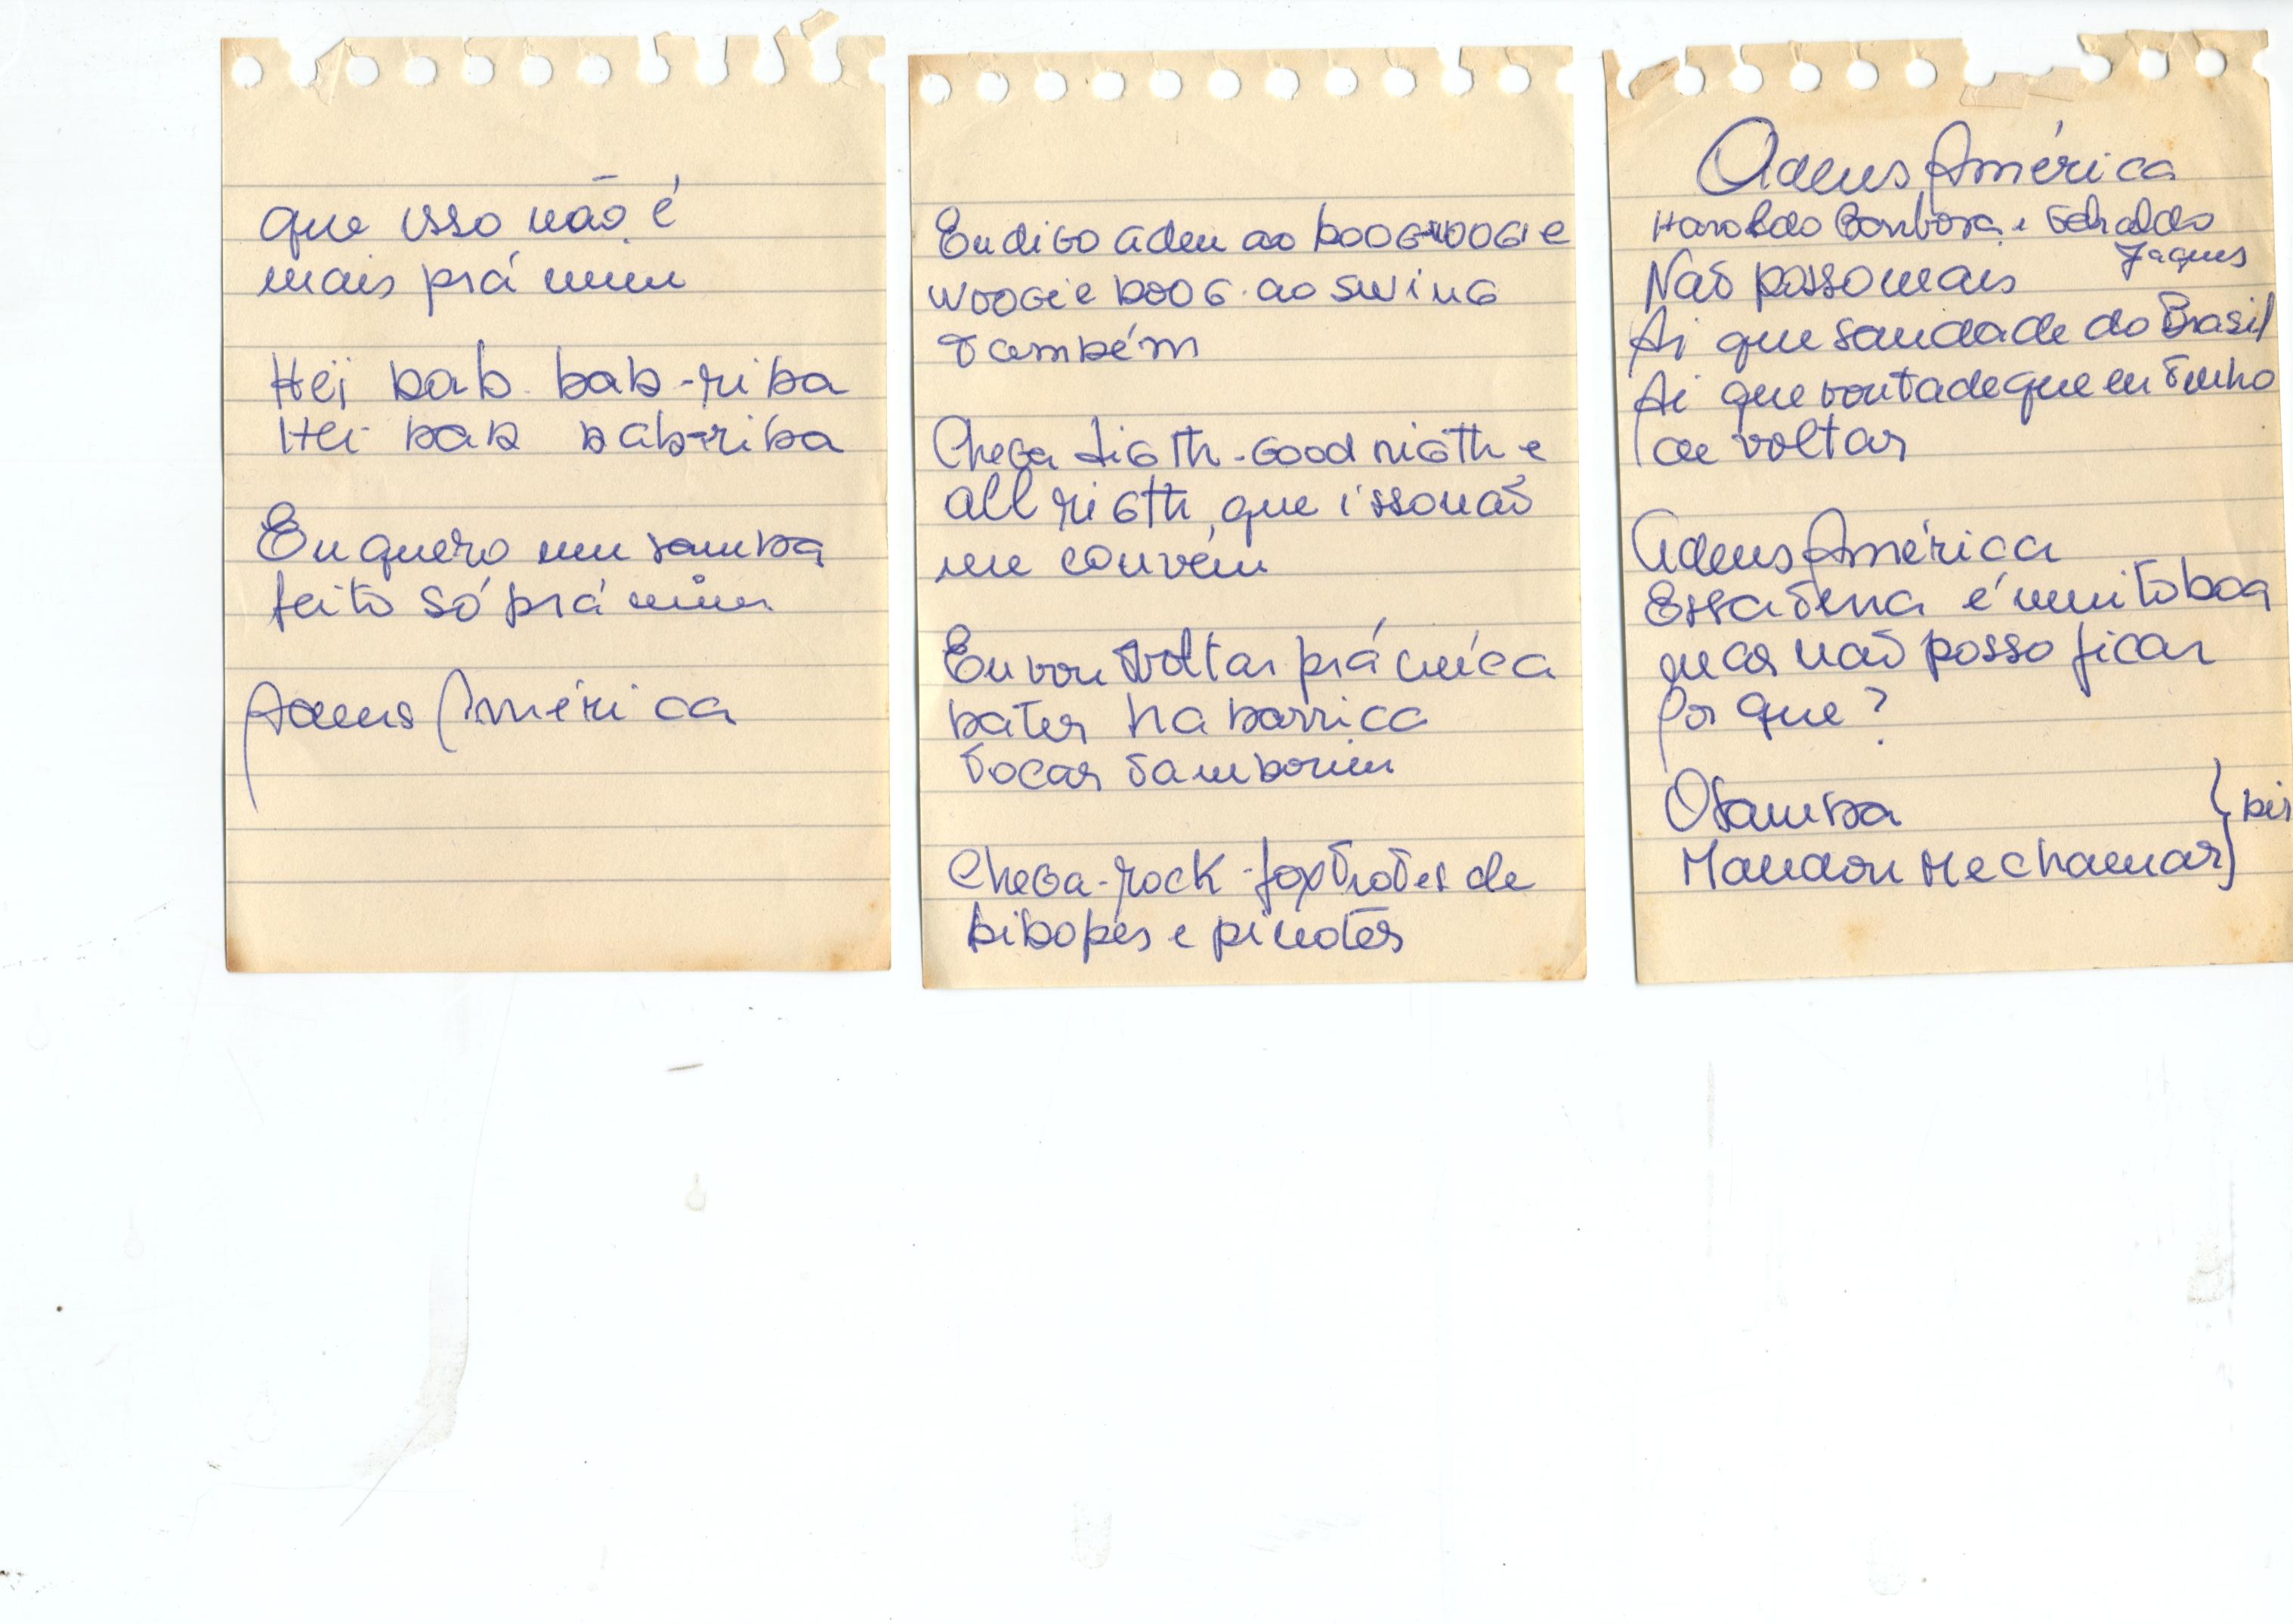 que isso não é
mais prá mim
Hei bab. bab-riba
Hei bab bab-riba
Eu quero um samba
feito só prá mim
Adeus América
Eu digo adeu ao boog-woogie e
woogie boog. ao swing
também
Chega ligth-good nigth e
all rigth, que isso não
me convém
Eu vou voltar prá cuíca
bater na barrica
tocar tamborim
Chega-rock-foxtrotes de
bibopes e pinotes
Adeus América
Haroldo Barbosa e Geraldo
Jaques
Não posso mais
Ai que saudade do Brasil
Ai que vontade que eu tenho
de voltar
Adeus América
Essa terra é muito boa
mas não posso ficar
por que?
O samba } bis
Mandou me chamar